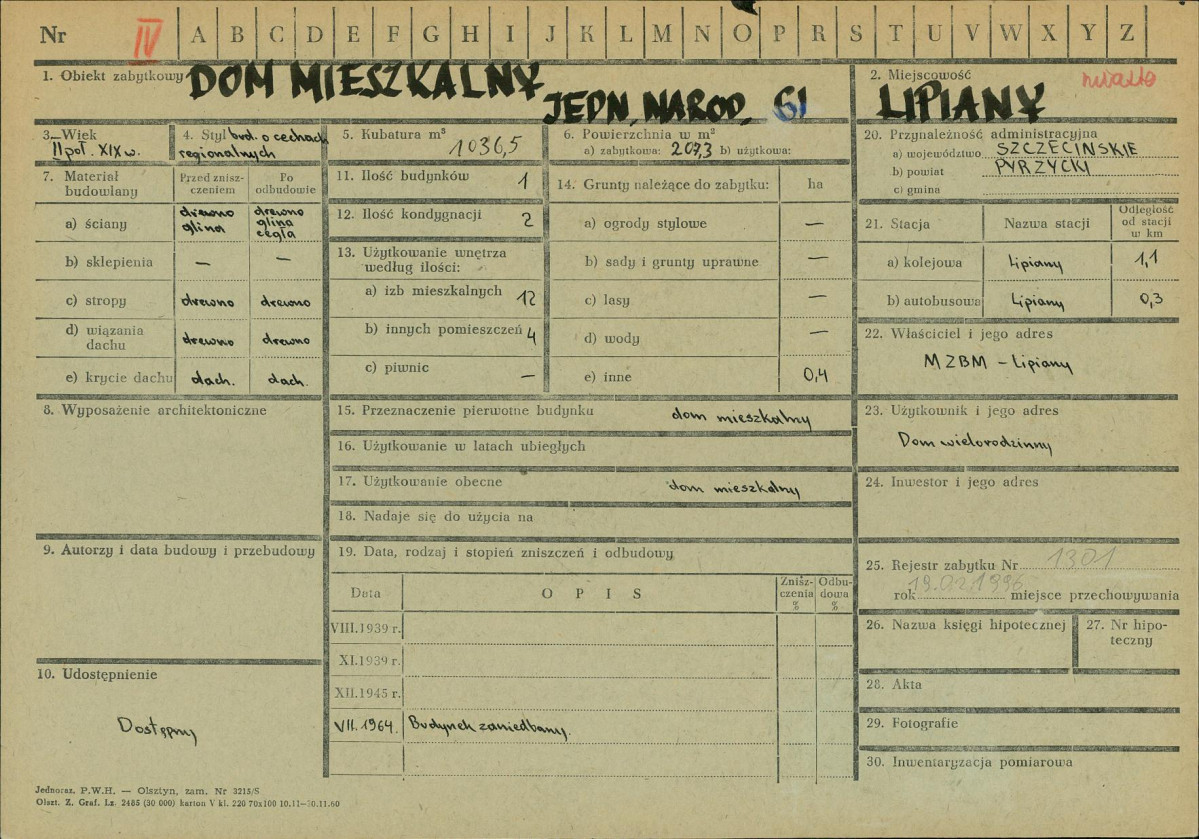 Nr IV A B C D E F G H I J K L M N O P R S T U V W X Y Z
1. Obiekt zabytkowy DOM MIESZKALNY
JEDN. NAROD. 61
2. Miejscowość miasto
LIPIANY
3. Wiek
II poł. XIX w.
4. Styl bud. o cechach
regionalnych
5. Kubatura m³
1036,5
6. Powierzchnia w m²
a) zabytkowa: 207,3 b) użytkowa:
7. Materiał
budowlany
Przed znisz-
czeniem
Po
odbudowie
a) ściany
drewno
glina
drewno
glina
cegła
b) sklepienia — —
c) stropy drewno drewno
d) wiązania
dachu drewno drewno
e) krycie dachu dach. dach.
8. Wyposażenie architektoniczne
9. Autorzy i data budowy i przebudowy
10. Udostępnienie
Dostępny
11. Ilość budynków 1
12. Ilość kondygnacji 2
13. Użytkowanie wnętrza
według ilości:
a) izb mieszkalnych 12
b) innych pomieszczeń 4
c) piwnic —
14. Grunty należące do zabytku: ha
a) ogrody stylowe —
b) sady i grunty uprawne —
c) lasy —
d) wody —
e) inne 0,4
15. Przeznaczenie pierwotne budynku dom mieszkalny
16. Użytkowanie w latach ubiegłych
17. Użytkowanie obecne dom mieszkalny
18. Nadaje się do użycia na
19. Data, rodzaj i stopień zniszczeń i odbudowy
Data OPIS
Znisz-
czenia
%
Odbu-
dowa
%
VIII.1939 r.
XI.1939 r.
XII.1945 r.
VII.1964 Budynek zaniedbany.
20. Przynależność administracyjna
a) województwo SZCZECIŃSKIE
b) powiat PYRZYCKI
c) gmina
21. Stacja Nazwa stacji
Odległość
od stacji
w km
a) kolejowa Lipiany 1,1
b) autobusowa Lipiany 0,3
22. Właściciel i jego adres
MZBM – Lipiany
23. Użytkownik i jego adres
Dom wielorodzinny
24. Inwestor i jego adres
25. Rejestr zabytku Nr 1301
rok 19.02.1996 miejsce przechowywania
26. Nazwa księgi hipotecznej
27. Nr hipo-
teczny
28. Akta
29. Fotografie
30. Inwentaryzacja pomiarowa
Jednoraz. P.W.H. — Olsztyn, zam. Nr 3215/S
Olszt. Z. Graf. Lz. 2485 (30 000) karton V kl. 220 70x100 10.11—10.11.60